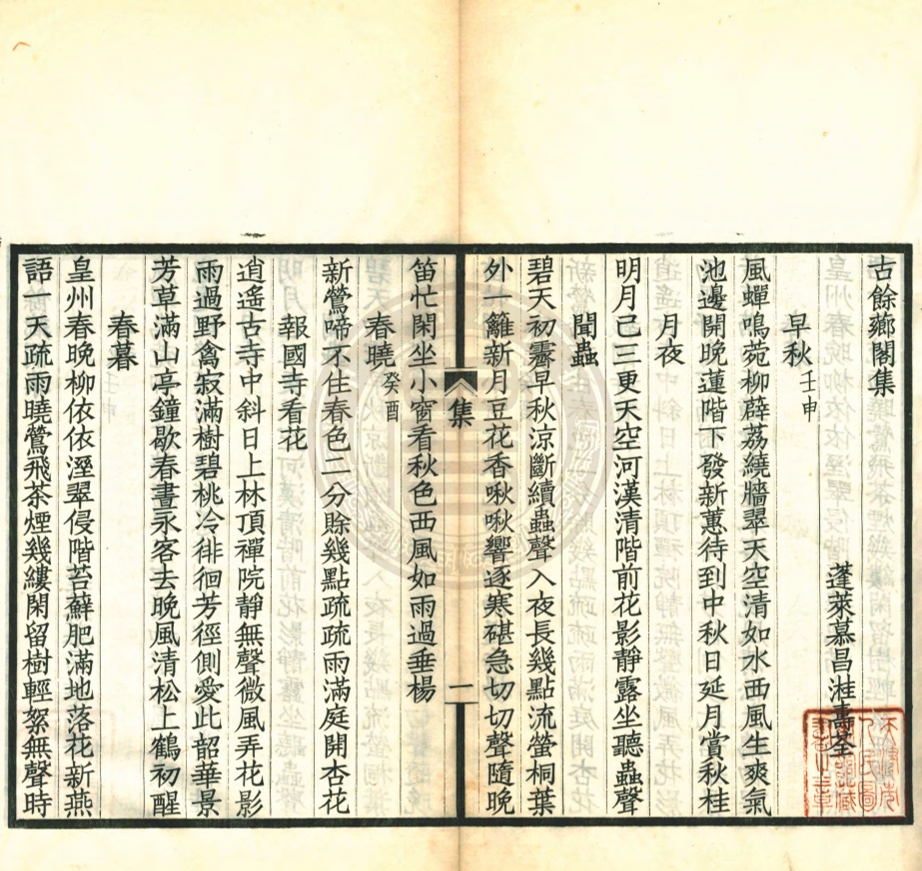 古餘薌閣集
蓬萊慕昌溎壽荃
早秋壬申
風蟬鳴菀柳薜荔繞牆翠天空清如水西風生爽氣
池邊開晚蓮階下發新蕙待到中秋日延月賞秋桂
月夜
明月已三更天空河漢清階前花影靜露坐聽蟲聲
聞蟲
碧天初霽早秋涼斷續蟲聲入夜長幾點流螢桐葉
外一籬新月豆花香啾啾響逐寒碪急切切聲隨晚
笛忙閑坐小窗看秋色西風如雨過垂楊
春曉癸酉
新鶯啼不住春色二分賖幾點疏疏雨滿庭開杏花
報國寺看花
逍遙古寺中斜日上林頂禪院靜無聲微風弄花影
雨過野禽寂滿樹碧桃冷徘徊芳徑側愛此韶華景
芳草滿山亭鐘歇春晝永客去晚風清松上鶴初醒
春暮
皇州春晚柳依依溼翠侵階苔蘚肥滿地落花新燕
語一天疏雨曉鶯飛茶煙幾縷閑留樹輕絮無聲時
集
一
天津市
人民圖
書館藏
書之章